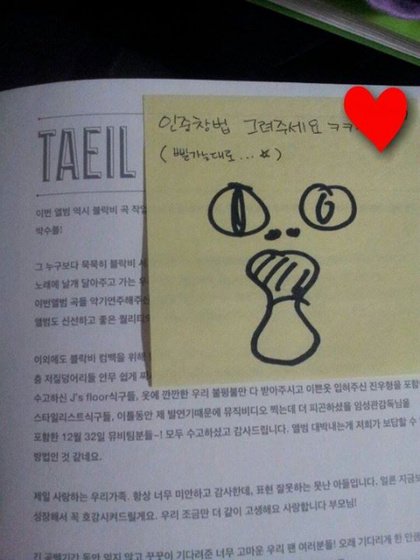 인중창법 그려주세요 ㅋㅋ
TAEIL
이번 앨범 역시 블락비 곡 작업
박수를!
그 누구보다 묵묵히 블락비
노래에 날개 달아주고 가는
이번앨범 곡을 악기연주해주
앨범도 신선하고 좋은 퀄리티
이외에도 블락비 컴백을 위해
춤 저질덩어리들 안무 쉽게
수고하신 J's floor식구들, 옷에 깐깐한 우리 불평불만 다 받아주시고 이쁜옷 입혀주신 진우형을 포함
스타일리스트식구들, 이틀동안 제 발언기때문에 뮤직비디오 찍는데 더 피곤하셨을 임성관감독님을
포함한 12월 32일 뮤비팀분들~! 모두 수고하셨고 감사드립니다. 앨범 대박내는게 저희가 보답할 수
방법인 것 같네요.
제일 사랑하는 우리가족. 항상 너무 미안하고 감사한데, 표현 잘못하는 못난 아들입니다. 얼른 지금보
성장해서 꼭 호강시켜드릴게요. 우리 조금만 더 같이 고생해요 사랑합니다 부모님!
긴 공백기간 동안 잊지 않고 꾸준히 기다려준 너무 고마운 우리 팬 여러분들! 오래 기다리게 한 만큼